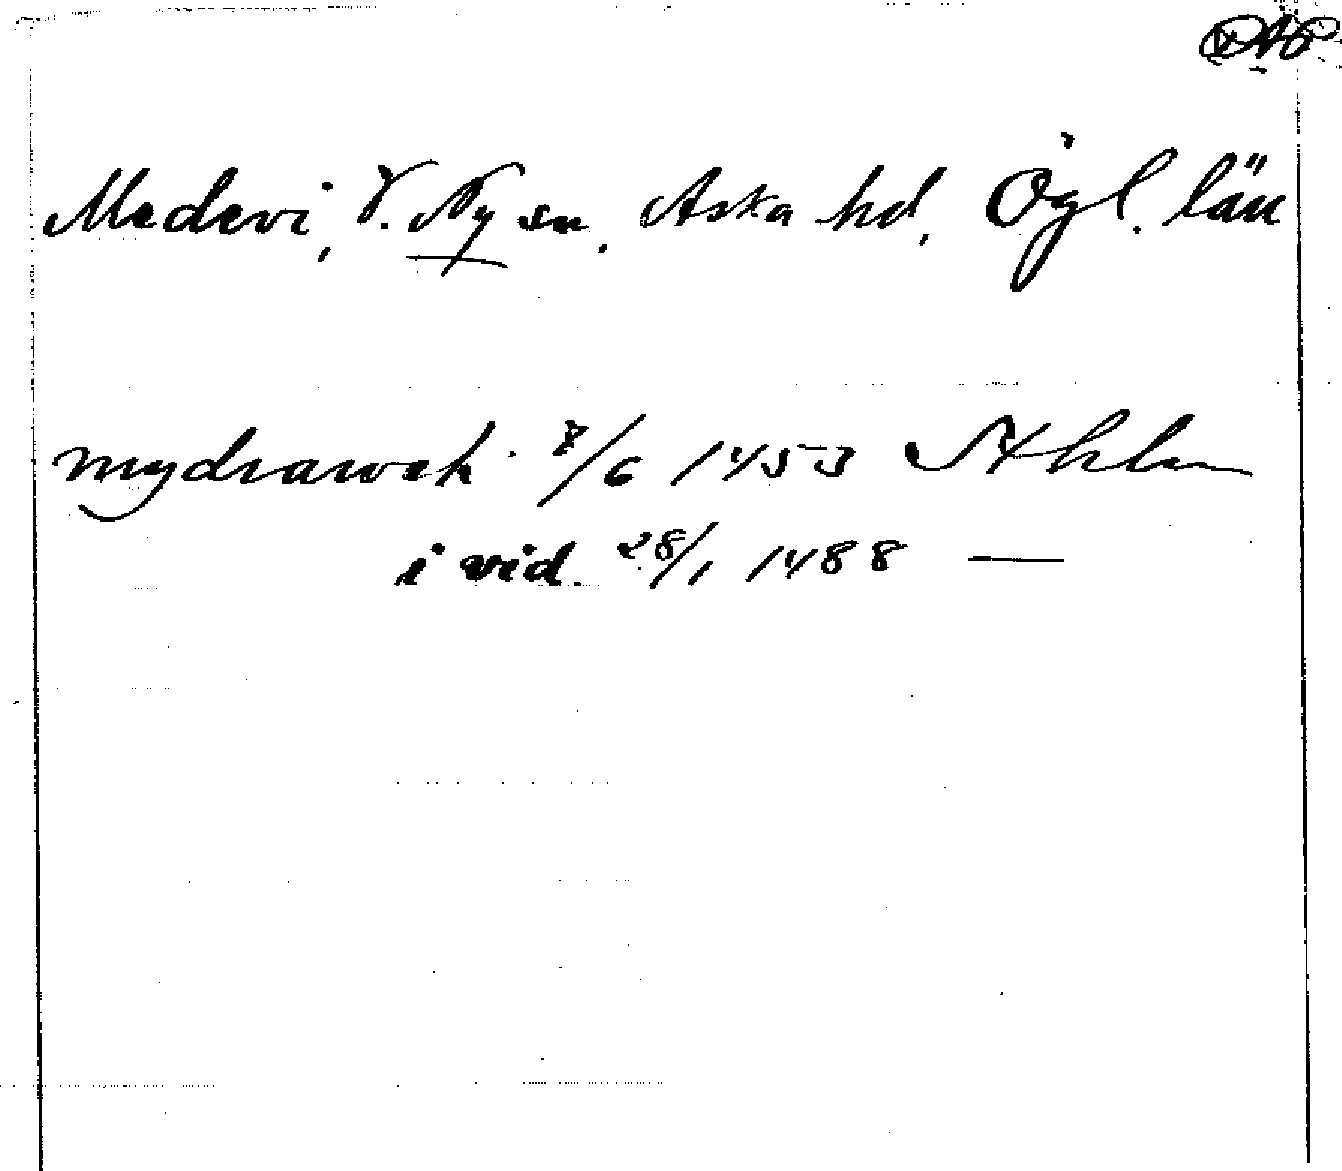 Medevi, V. Ny sn, Aska hd, Ögl. län
mydhawek 8/6 1453 Ahlm
i vid. 28/1 1488 —